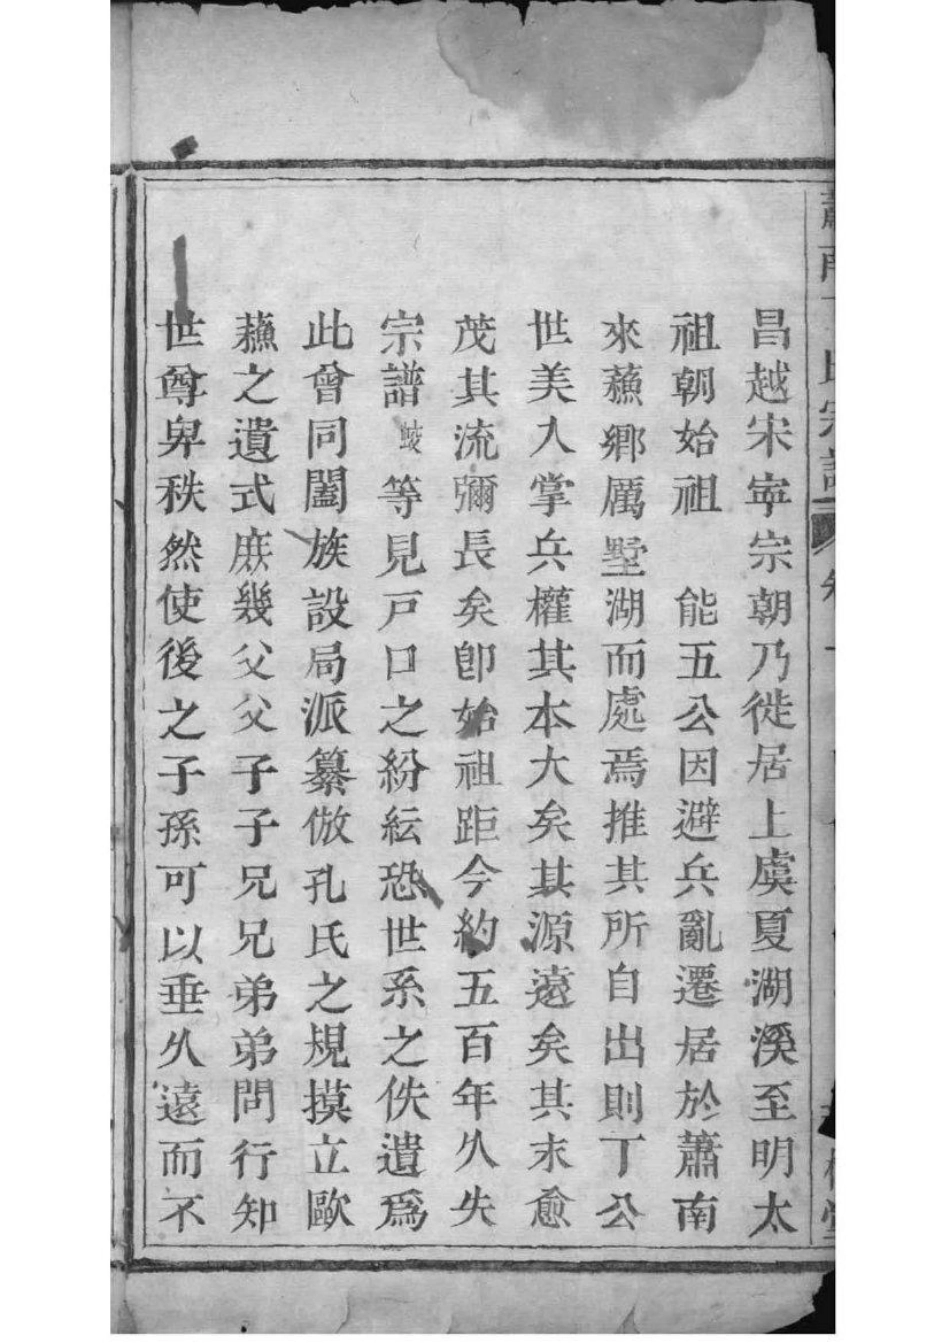 昌越宋寧宗朝乃徙居上虞夏湖溪至明太
祖朝始祖　能五公因避兵亂遷居於蕭南
來蘓鄉厲墅湖而處焉推其所自出則丁公
世美入掌兵權其本大矣其源遠矣其末愈
茂其流彌長矣卽始祖距今約五百年久失
宗譜𡵆等見戸口之紛紜恐世系之佚遺爲
此會同闔族設局派纂倣孔氏之規摸立歐
蘓之遺式庶幾父父子子兄兄弟弟問行知
世尊卑秩然使後之子孫可以垂久遠而不